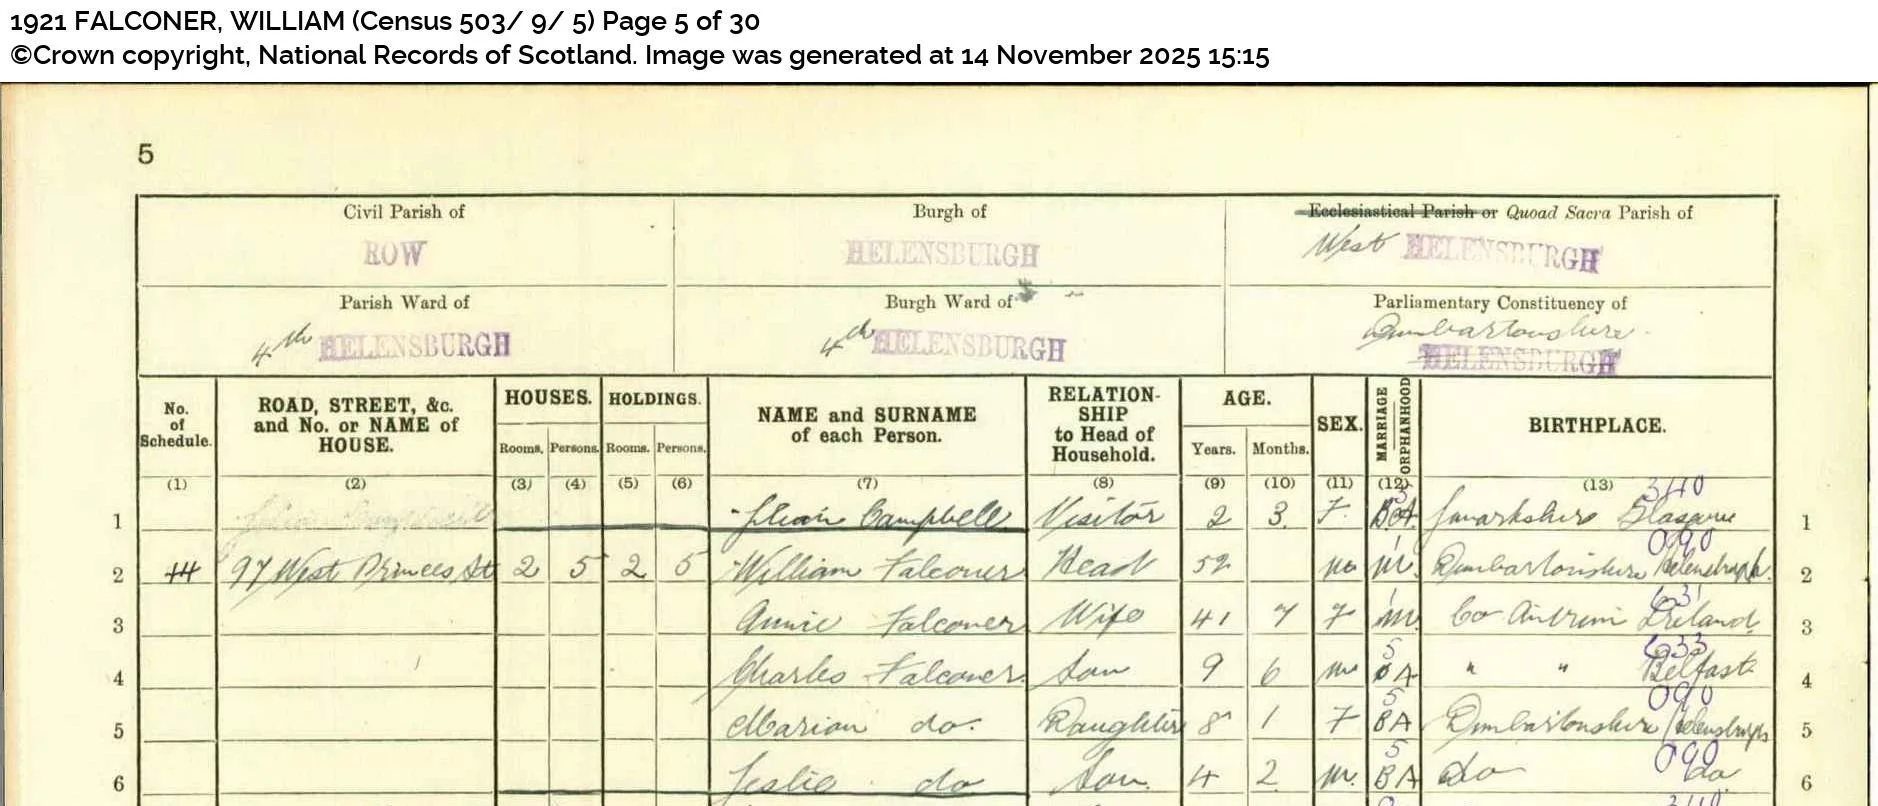 1921 FALCONER, WILLIAM (Census 503/ 9/ 5) Page 5 of 30
©Crown copyright, National Records of Scotland. Image was generated at 14 November 2025 15:15
5
Civil Parish of Burgh of Ecclesiastical Parish or Quoad Sacra Parish of
ROW HELENSBURGH West HELENSBURGH
Parish Ward of Burgh Ward of Parliamentary Constituency of
4th HELENSBURGH 4th HELENSBURGH Dumbartonshire
HELENSBURGH
No. of Schedule. ROAD, STREET, &c. and No. or NAME of HOUSE. HOUSES. HOLDINGS. NAME and SURNAME of each Person. RELATION-SHIP to Head of Household. AGE. SEX. MARRIAGE ORPHANHOOD BIRTHPLACE.
Rooms. Persons. Rooms. Persons. Years. Months.
(1) (2) (3) (4) (5) (6) (7) (8) (9) (10) (11) (12) (13)
1 Campbell Visitor 2 3 F. Lanarkshire Glasgow 1
2 97 West Princes St 2 5 2 5 William Falconer Head 52 M M. Dumbartonshire Helensburgh. 090 2
3 Annie Falconer Wife 41 7 F M. Co Antrim Ireland 3
4 Charles Falconer Son 9 6 M 5 A " " Belfast 633 4
5 Marian do. Daughter 8 1 F 5 BA Dumbartonshire Helensburgh 090 5
6 Leslie do Son 4 2 M. 5 BA do do 090 6